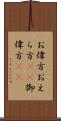 お偉方おえ
ら方御
偉方